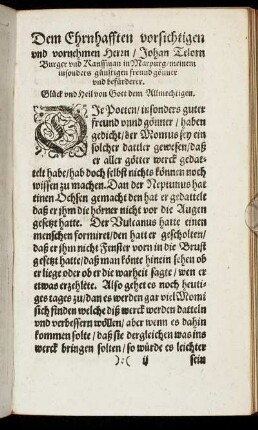 Dem Ehrnhafften vorsichtigen
vnd vornehmen Herrn / Johan Telorn
Burger vnd Kauffman in Marpurg / meinem
insonders günstigen freund gönner
vnd befürderer.
Glück vnd Heil von Gott dem Allmechtigen.
DJe Poeten / insonders guter
freund vnnd gönner / haben
gedicht / der Momus sey ein
solcher dattler gewesen / daß
er aller götter werck gedat-
telt habe / hab doch selbst nichts können noch
wissen zu machen. Dan der Neptunus hat
einen Ochsen gemacht den hat er gedattelt
daß er jhm die hörner nicht vor die Augen
gesetzt hatte. Der Vulcanus hatte einen
menschen formiret / den hatt er gescholten /
daß er jhm nicht Fenster vorn in die Brust
gesetzt hatte / daß man könte hinein sehen ob
er liege oder ob er die warheit sagte / wen er
etwas erzehlete. Also gehet es noch heuti-
ges tages zu / dan es werden gar viel Momi
sich finden welche diß werck werden datteln
vnd verbessern wöllen / aber wenn es dahin
kommen solte / daß sie dergleichen was ins
werck bringen solten / so würde es leichter
):( ij sein